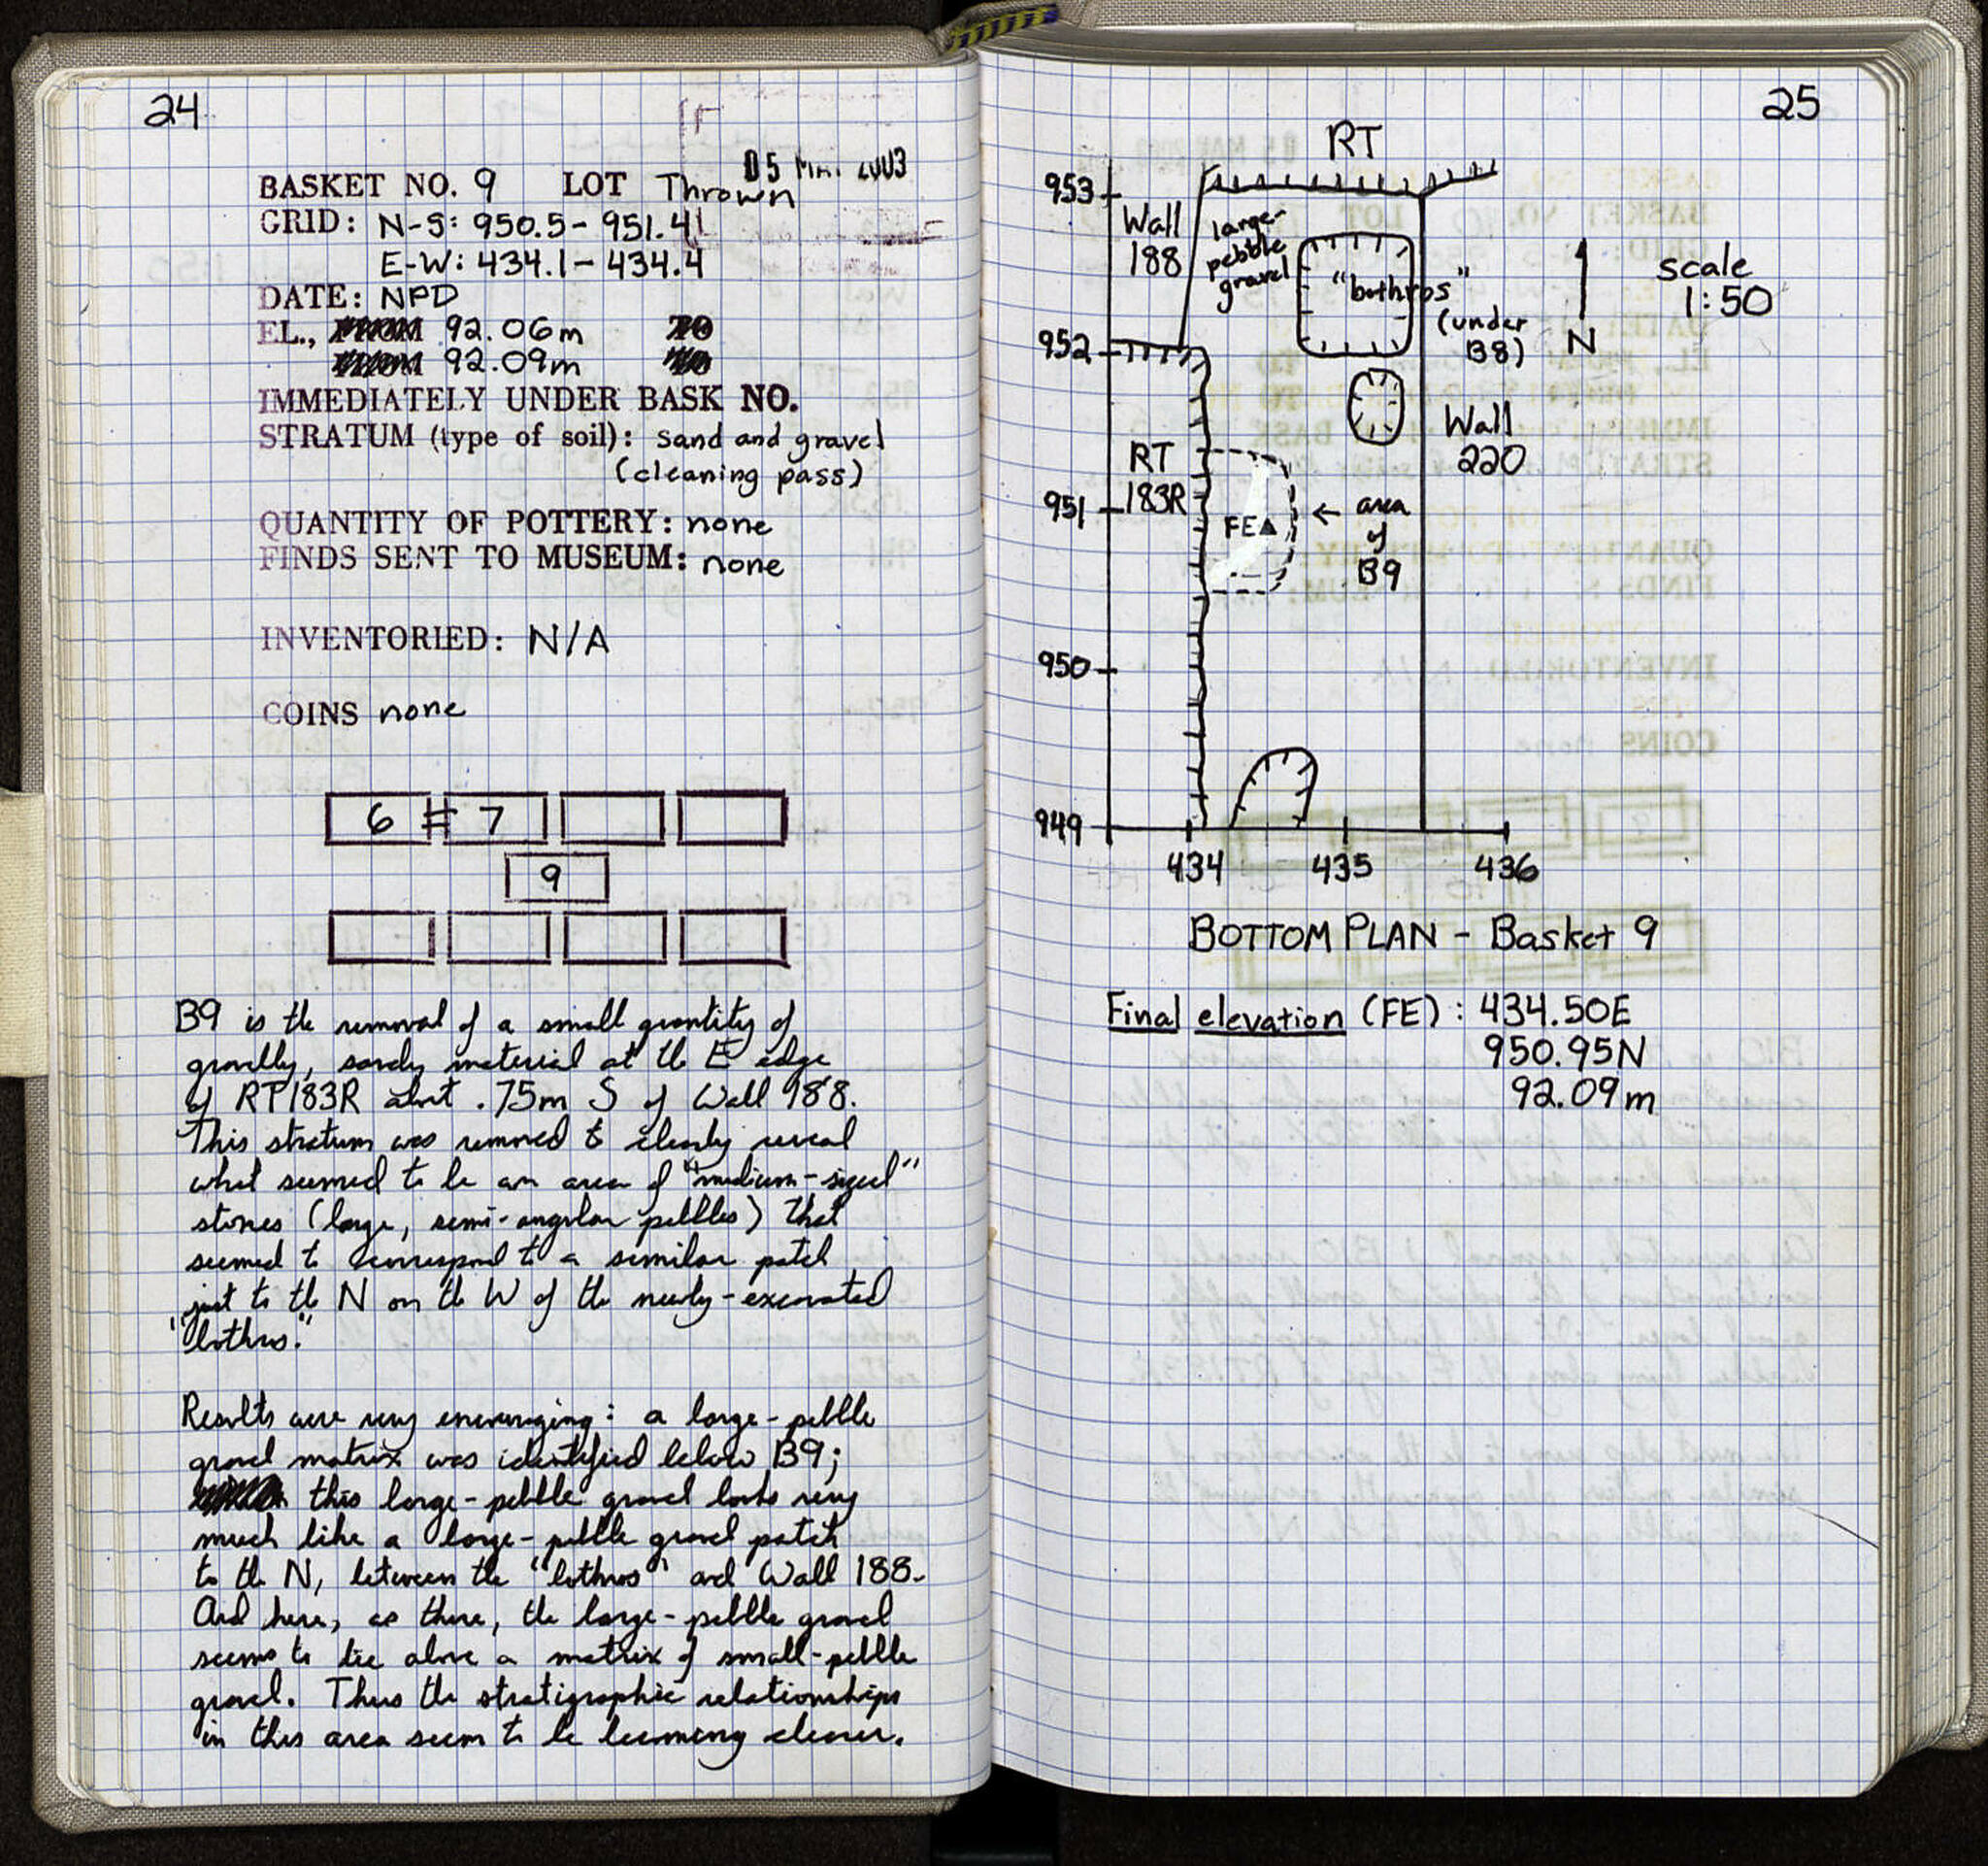 24
05 MAY 2003
BASKET NO. 9 LOT Thrown
GRID: N-S: 950.5-951.4
E-W: 434.1-434.4
DATE: NPD
EL., 92.06m
92.09m
IMMEDIATELY UNDER BASK NO.
STRATUM (type of soil): sand and gravel
(cleaning pass)
QUANTITY OF POTTERY: none
FINDS SENT TO MUSEUM: none
INVENTORIED: N/A
COINS none
6 # 7
9
B9 is the removal of a small quantity of
gravelly, sandy material at the E edge
of RT183R about .75m S of Wall 188.
This stratum was removed to clearly reveal
what seemed to be an area of "medium-sized"
stones (large, semi-angular pebbles) that
seemed to correspond to a similar patch
just to the N on the W of the newly-excavated
"bothros."
Results were very encouraging: a large-pebble
gravel matrix was identified below B9;
this large-pebble gravel looks very
much like a large-pebble gravel patch
to the N, between the "bothros" and Wall 188.
And here, as there, the large-pebble gravel
seems to lie above a matrix of small-pebble
gravel. Thus the stratigraphic relationships
in this area seem to be becoming clearer.
25
RT
953
Wall
188
large-
pebble
gravel
"bothros"
(under
B8)
N
scale
1:50
952
Wall
220
RT
183R
951
FE
← area
of
B9
950
949
434 435 436
BOTTOM PLAN - Basket 9
Final elevation (FE): 434.50E
950.95N
92.09m